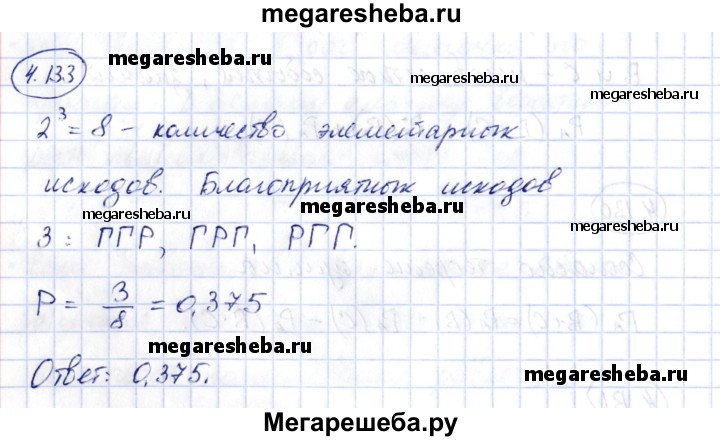 megaresheba.ru
4.133
megaresheba.ru
megaresheba.ru
2³ = 8 – количество элементарных
исходов. Благоприятных исходов
megaresheba.ru
megaresheba.ru
megaresheba.ru
3: ГГР, ГРГ, РГГ.
P = 3/8 = 0,375
megaresheba.ru
megaresheba.ru
Ответ: 0,375.
megaresheba.ru
Мегарешеба.ру